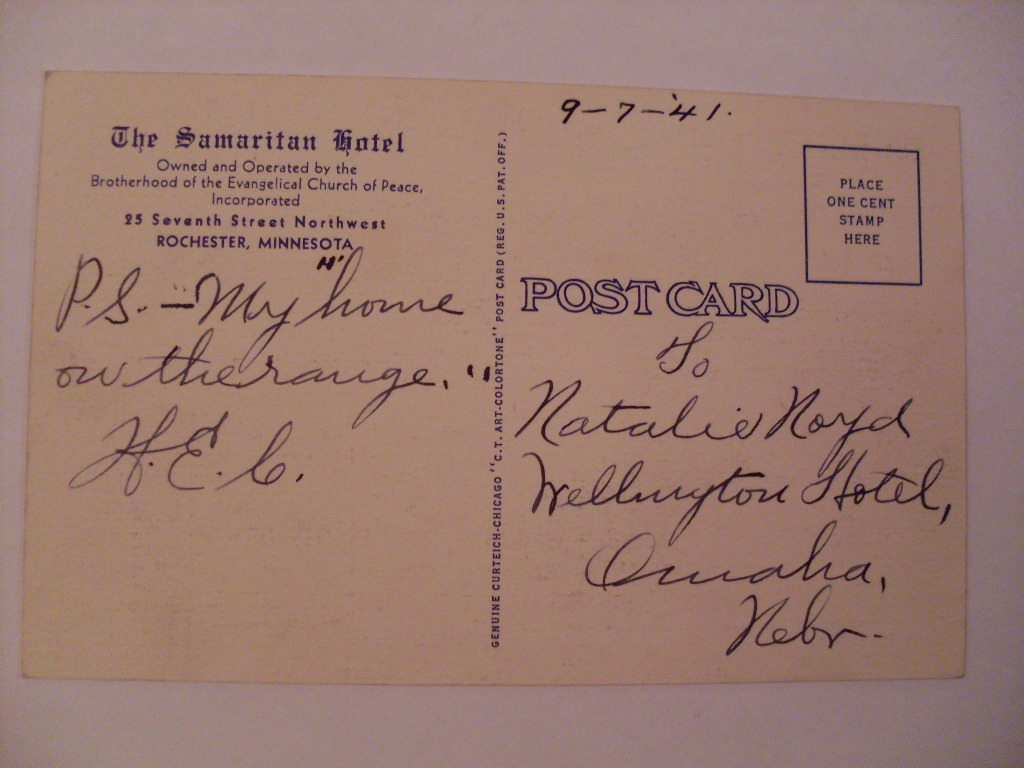 The Samaritan Hotel
Owned and Operated by the
Brotherhood of the Evangelical Church of Peace,
Incorporated
25 Seventh Street Northwest
ROCHESTER, MINNESOTA
P.S. - My "home
on the range."
H.E.C.
GENUINE CURTEICH-CHICAGO "C.T. ART-COLORTONE" POST CARD (REG. U.S. PAT. OFF.)
9-7-'41.
PLACE
ONE CENT
STAMP
HERE
POST CARD
To
Natalie Noyd
Wellington Hotel,
Omaha,
Nebr.